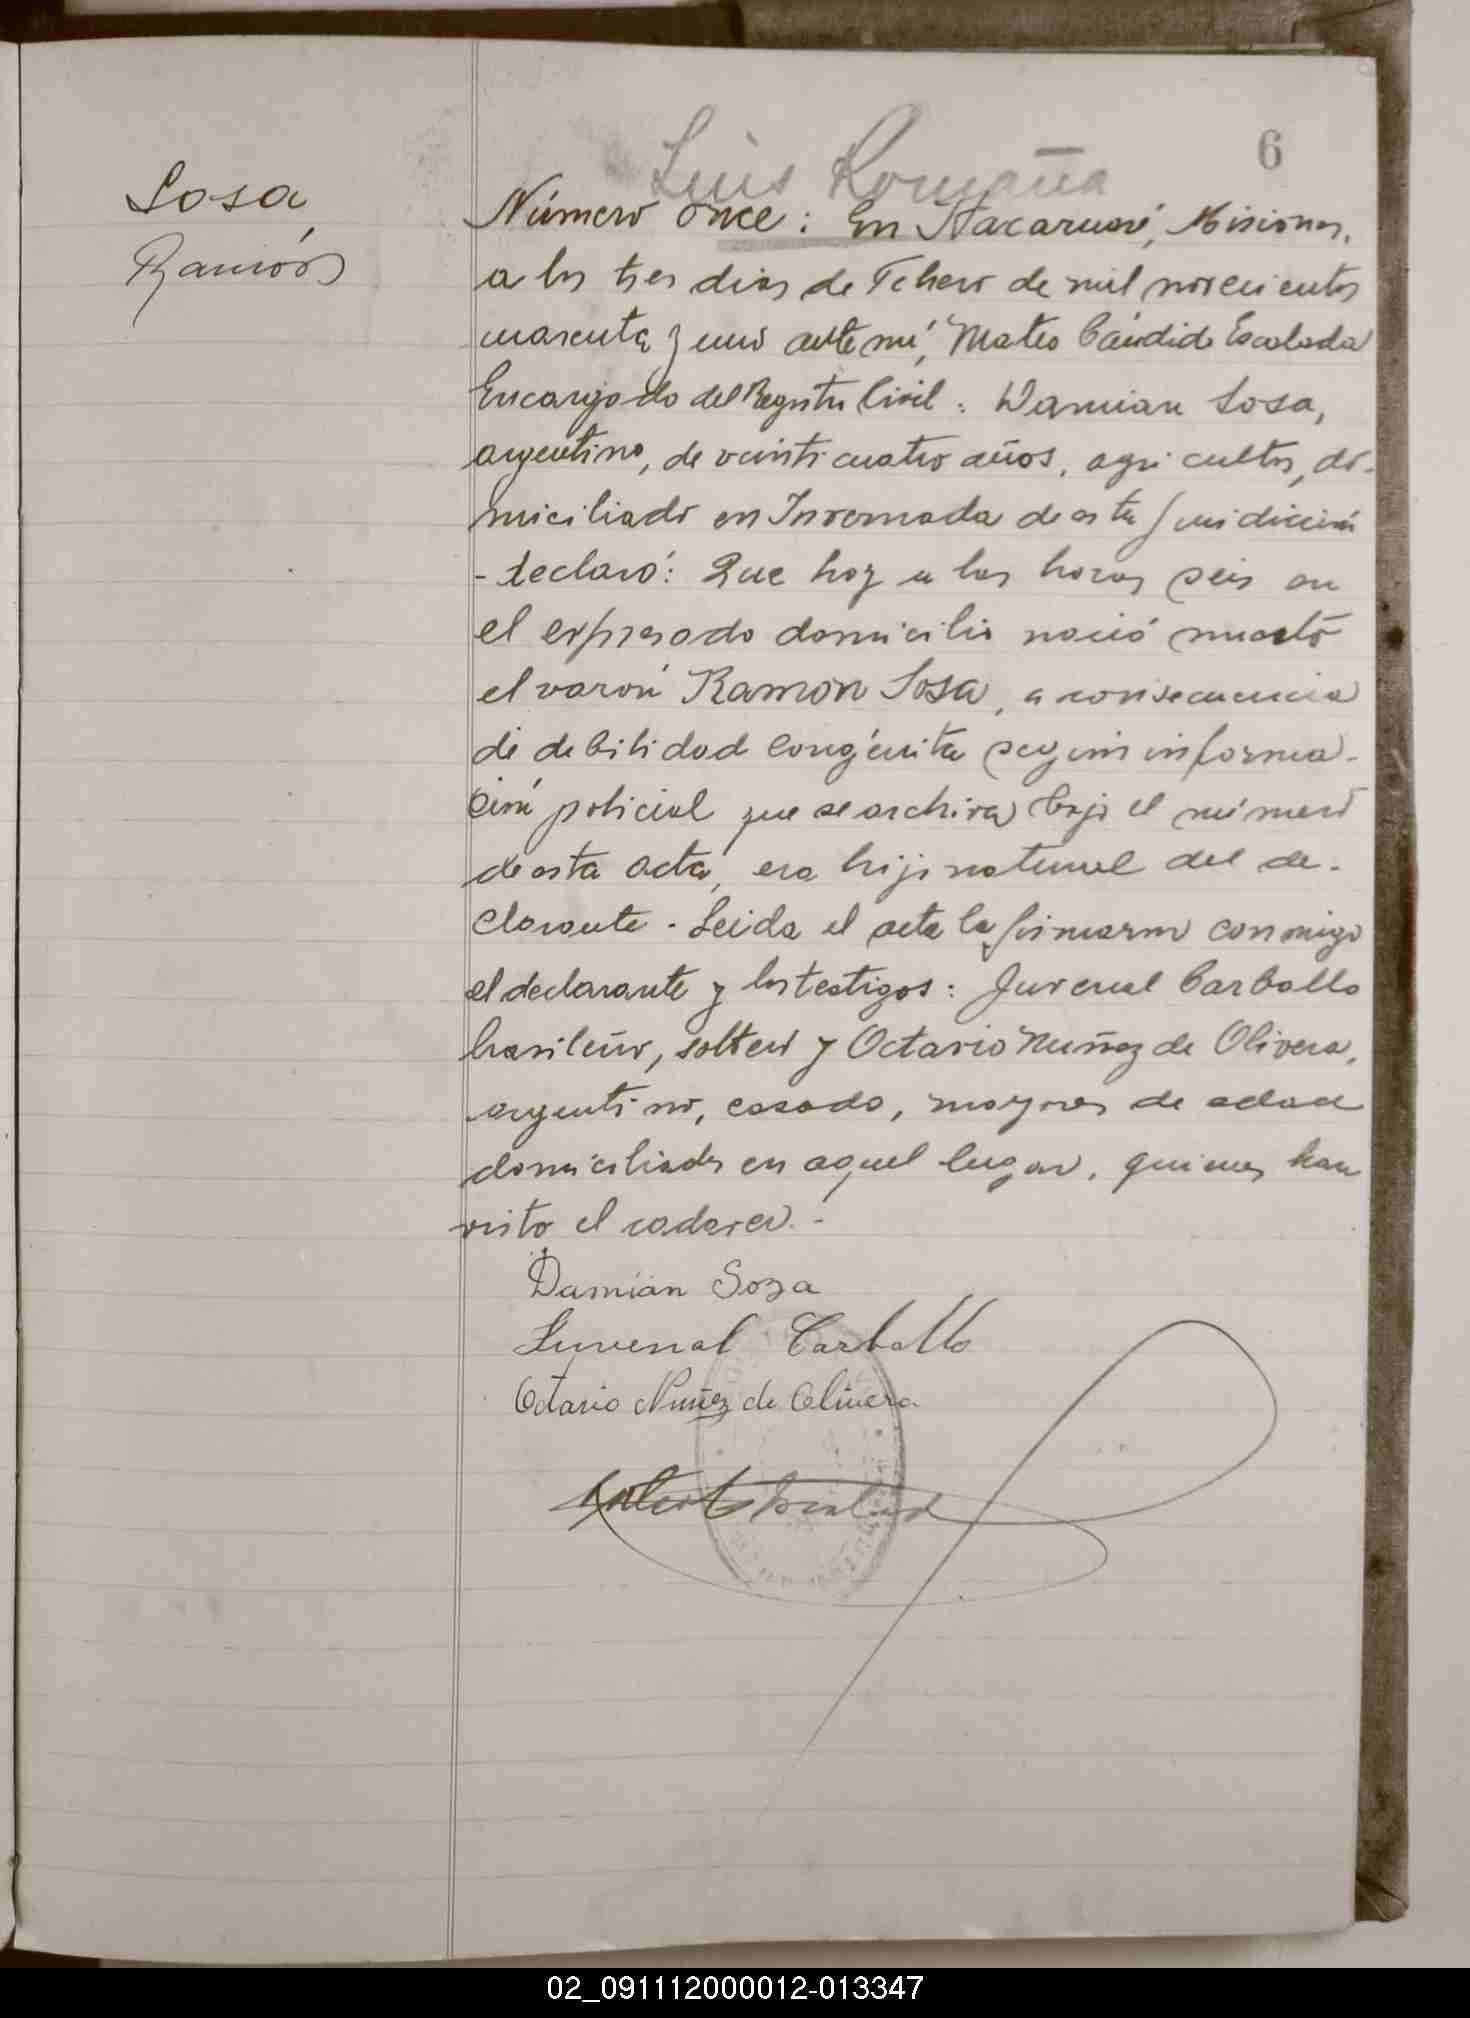 Luis Romaña
6
Sosa
Ramón
Número once: En Itacaruaré, Misiones,
a los tres dias de Febrero de mil novecientos
cuarenta y uno ante mí, Mateo Cándido Escalada
Encargado del Registro Civil: Damian Sosa,
argentino, de veinticuatro años, agricultor, do-
miciliado en Invernada de esta jurisdicción
-declaró: Que hoy a las horas seis en
el expresado domicilio nació muerto
el varón Ramon Sosa, a consecuencia
de debilidad congénita según informa-
ción policial que se archiva bajo el número
de esta acta, era hijo natural del de-
clarante - Leida el acta la firmaron conmigo
el declarante y los testigos: Juvenal Carballo
brasileño, soltero y Octavio Nuñez de Olivera,
argentino, casado, mayores de edad
domiciliados en aquel lugar, quienes han
visto el cadaver.-
Damián Soza
Juvenal Carballo
Octavio Nuñez de Olivera
02_091112000012-013347